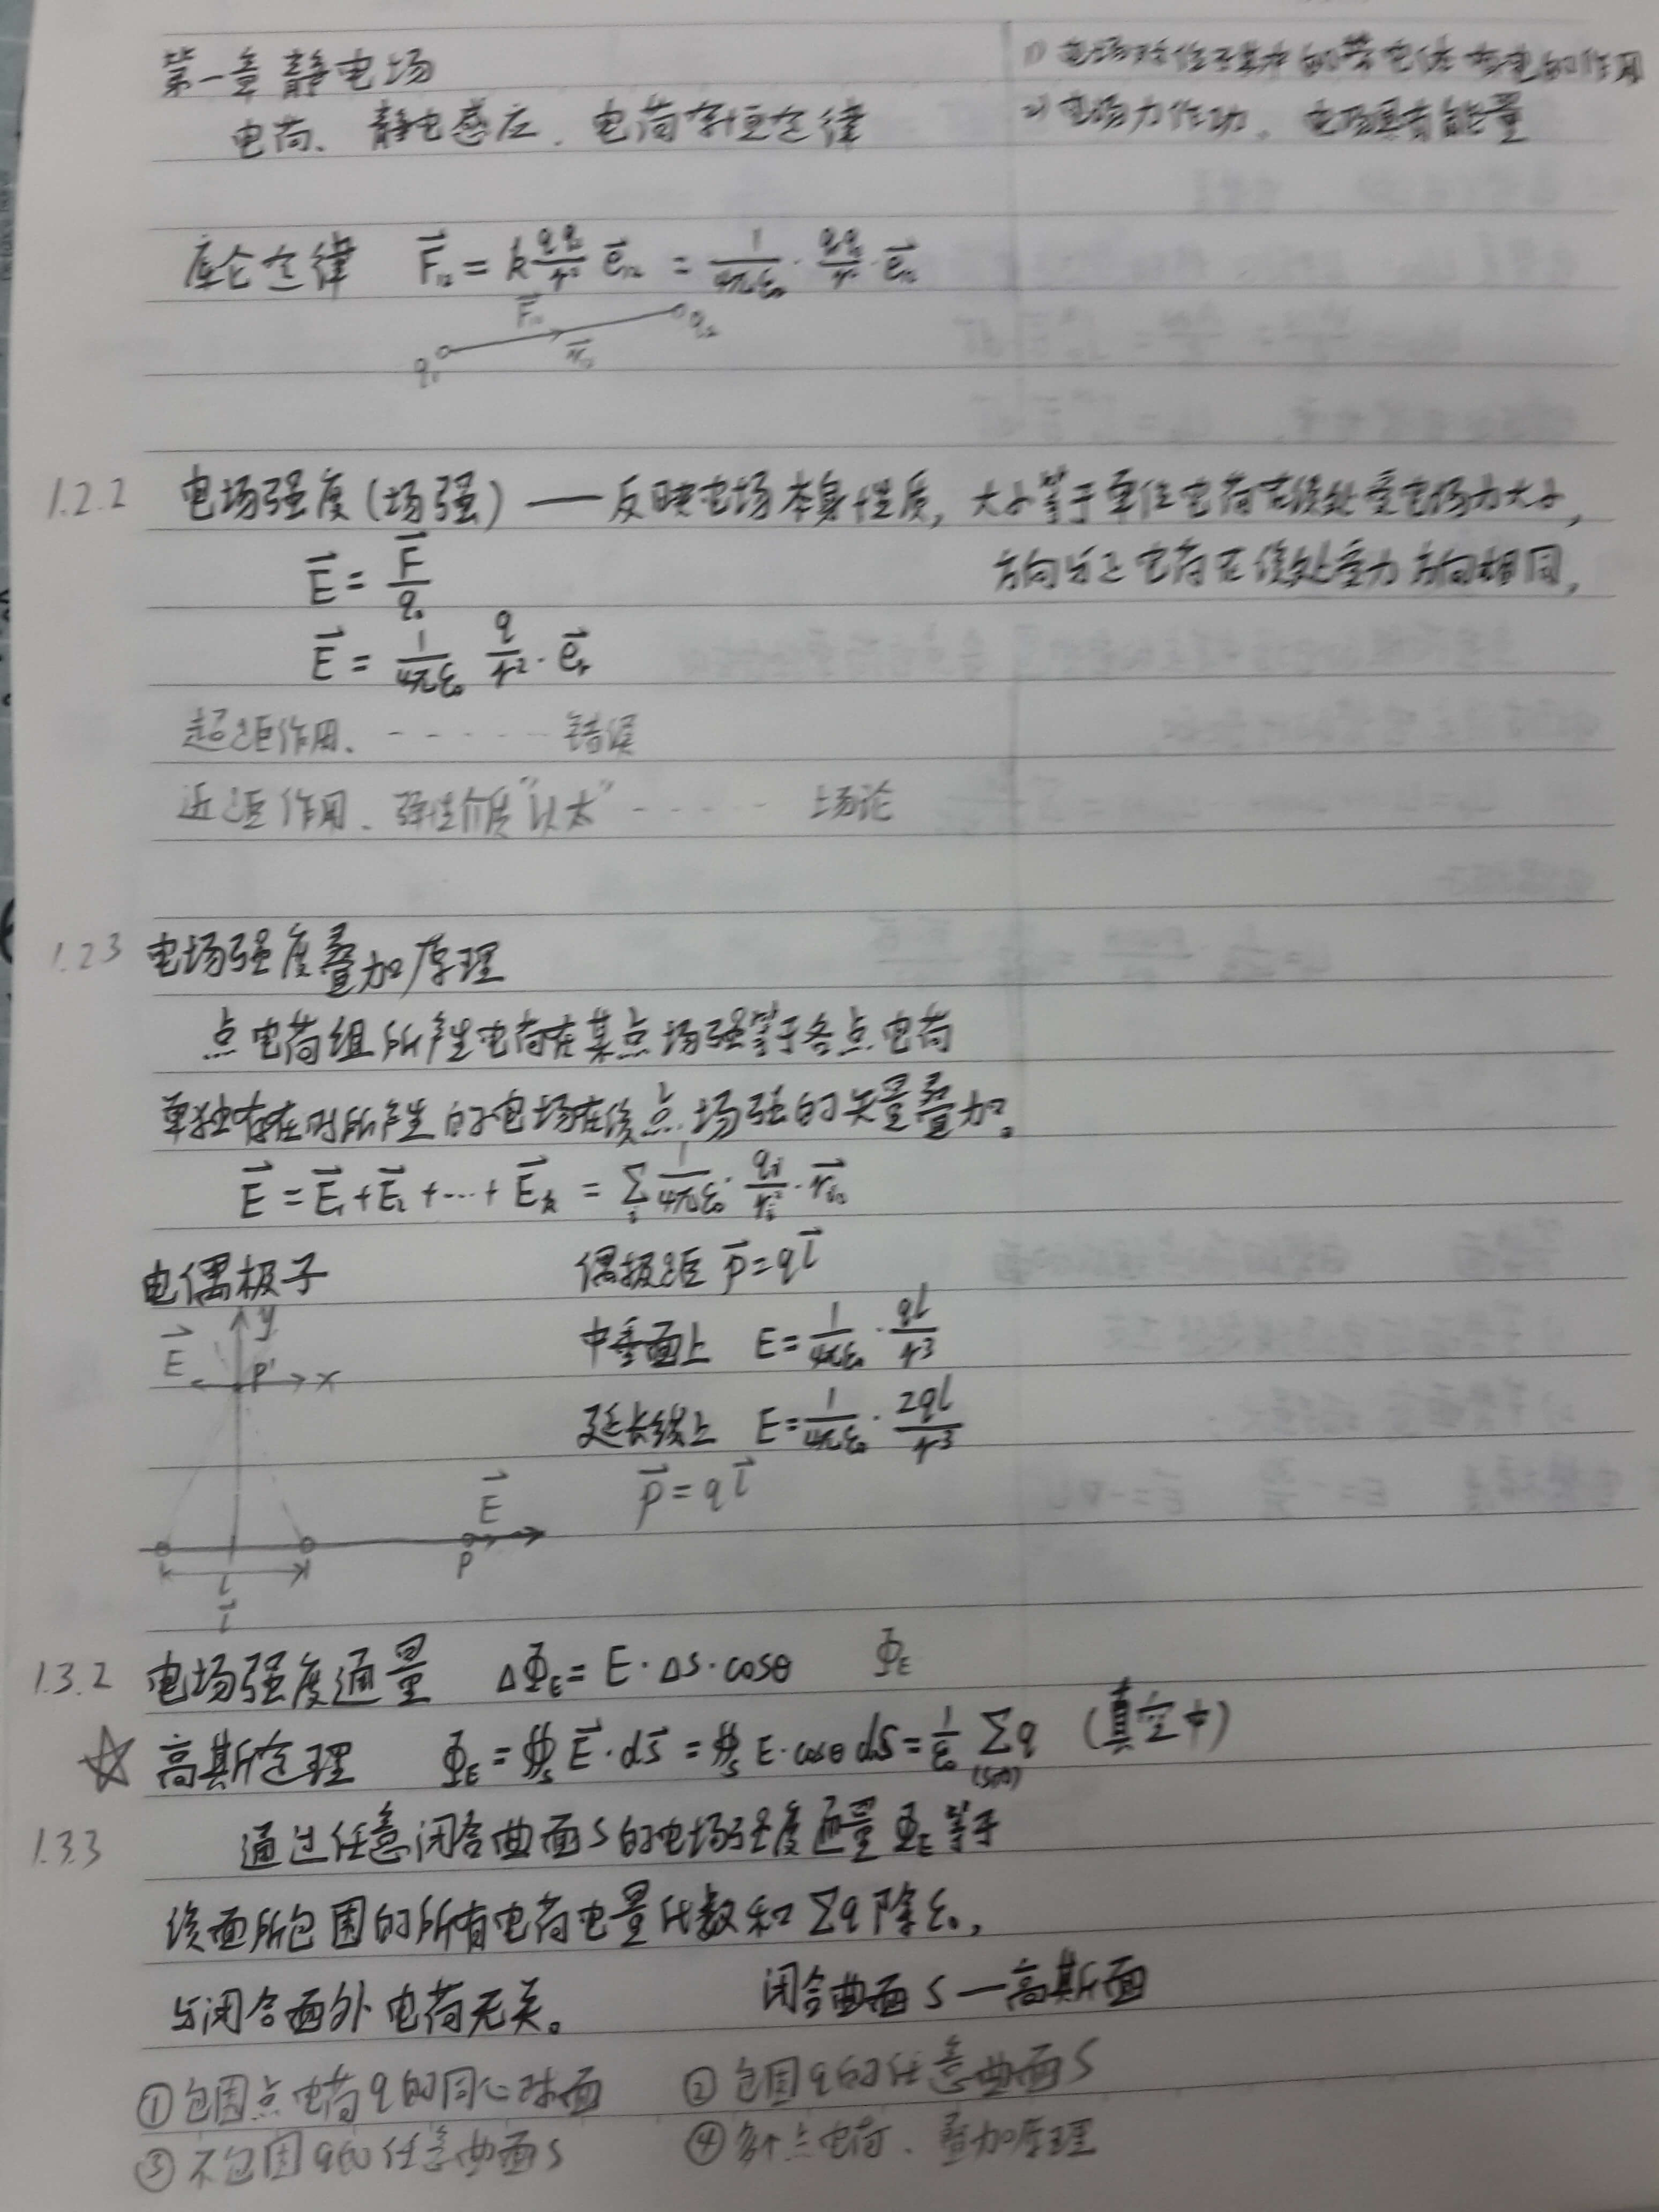 第一章 静电场
电荷、静电感应、电荷守恒定律
1) 电场对位于其中的带电体有电的作用
2) 电场力作功。电场具有能量
库仑定律 F⃗₁₂ = k q₁q₂/r² e⃗₁₂ = 1/4πε₀ · q₁q₂/r² · e⃗₁₂
F⃗₁₂
q₁ r⃗₁₂ q₂
1.2.2 电场强度(场强) —— 反映电场本身性质, 大小等于单位电荷在该处受电场力大小,
方向与正电荷在该处受力方向相同,
E⃗ = F⃗/q₀
E⃗ = 1/4πε₀ q/r² · e⃗ᵣ
超距作用、------ 错误
近距作用、弹性介质"以太" ----- 场论
1.2.3 电场强度叠加原理
点电荷组所产生电荷在某点场强等于各点电荷
单独存在时所产生的电场在该点场强的矢量叠加。
E⃗ = E⃗₁ + E⃗₂ + ··· + E⃗ₖ = Σᵢ 1/4πε₀ · qᵢ/rᵢ² · r⃗ᵢ₀
电偶极子 偶极距 p⃗ = ql⃗
中垂面上 E = 1/4πε₀ · ql/r³
延长线上 E = 1/4πε₀ · 2ql/r³
p⃗ = ql⃗
y
E⃗ P' x
E⃗
P
l
l⃗
1.3.2 电场强度通量 ΔΦ_E = E·ΔS·cosθ Φ_E
☆ 高斯定理 Φ_E = ∯ₛ E⃗·dS⃗ = ∯ₛ E·cosθ dS = 1/ε₀ Σq (S内) (真空中)
1.3.3 通过任意闭合曲面S的电场强度通量Φ_E等于
该面所包围的所有电荷电量代数和Σq除ε₀,
与闭合面外电荷无关。 闭合曲面S—高斯面
①包围点电荷q的同心球面 ②包围q的任意曲面S
③不包围q的任意曲面S ④多个点电荷、叠加原理